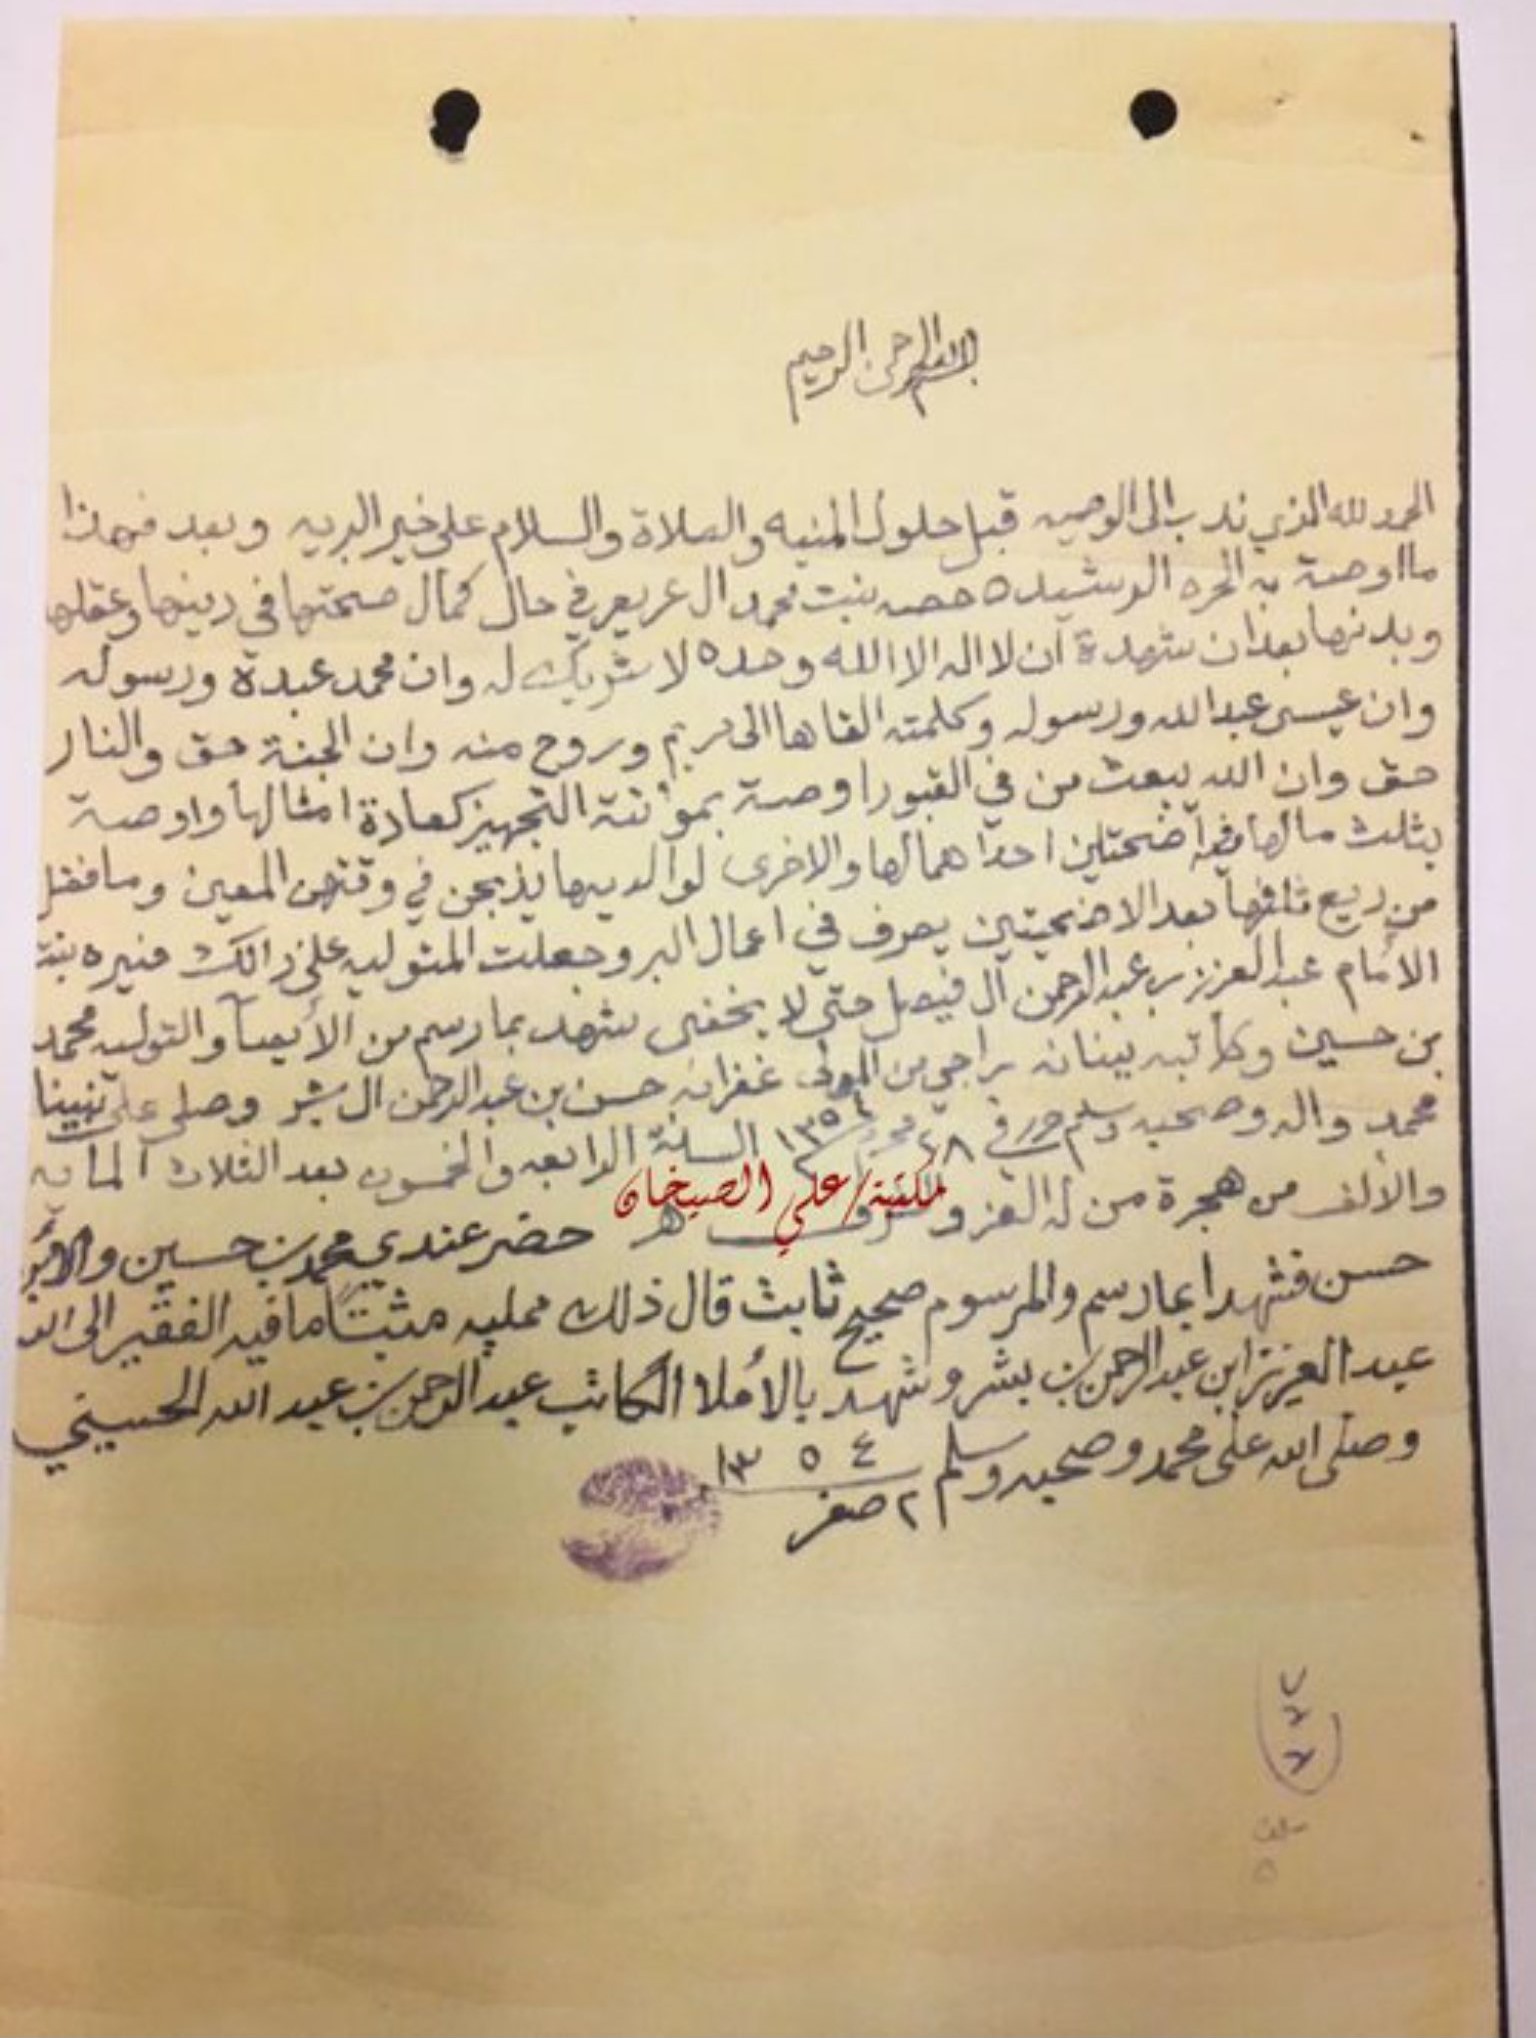 بسم الله الرحمن الرحيم
الحمد لله الذي ندب الى الوصيه قبل حلول المنيه والصلاة والسلام على خير البريه وبعد فهذا
ما اوصة به الحره الرشيده حصه بنت محمد ال عريعر في حال كمال صحتها في دينها وعقلها
وبدنها بعد ان شهدة ان لا اله الا الله وحده لا شريك له وان محمد عبدة ورسوله
وان عيسى عبد الله ورسوله وكلمته القاها الى مريم وروح منه وان الجنة حق والنار
حق وان الله يبعث من في القبور اوصة بمؤنة التجهيز كعادة امثالها واوصة
بثلث مالها فيه اضحتين احداهما لها والاخرى لوالديها يذبحن في وقتهن المعين وما فضل
من ريع ثلثها بعد الاضحيتين يصرف في اعمال البر وجعلت المتوليه على ذالك منيره بنت
الأمام عبد العزيز بن عبد الرحمن ال فيصل حتى لا يخفى شهد بما رسم من الأيصآ والتوليه محمد
بن حسين وكاتبه بينانه راجي من المولى غفرانه حسن بن عبد الرحمن ال بشر وصلى على نبينا
محمد واله وصحبه وسلم حرر في ٢٨ محرم ١٣٥٤ السنة الرابعه والخمسون بعد الثلاث المايه
والألف من هجرة من له العز و الشرف هـ حضر عندي محمد بن حسين والأخ
مكتبة/علي الصيخان
حسن فشهدا بما رسم والمرسوم صحيح ثابت قال ذلك ممليه مثبتا ما فيه الفقير الى الله
عبد العزيز ابن عبد الرحمن بن بشر وشهد بالأملا الكاتب عبد الرحمن بن عبد الله الحسيني
وصلى الله على محمد وصحبه وسلم ٢ صفر ١٣٥٤